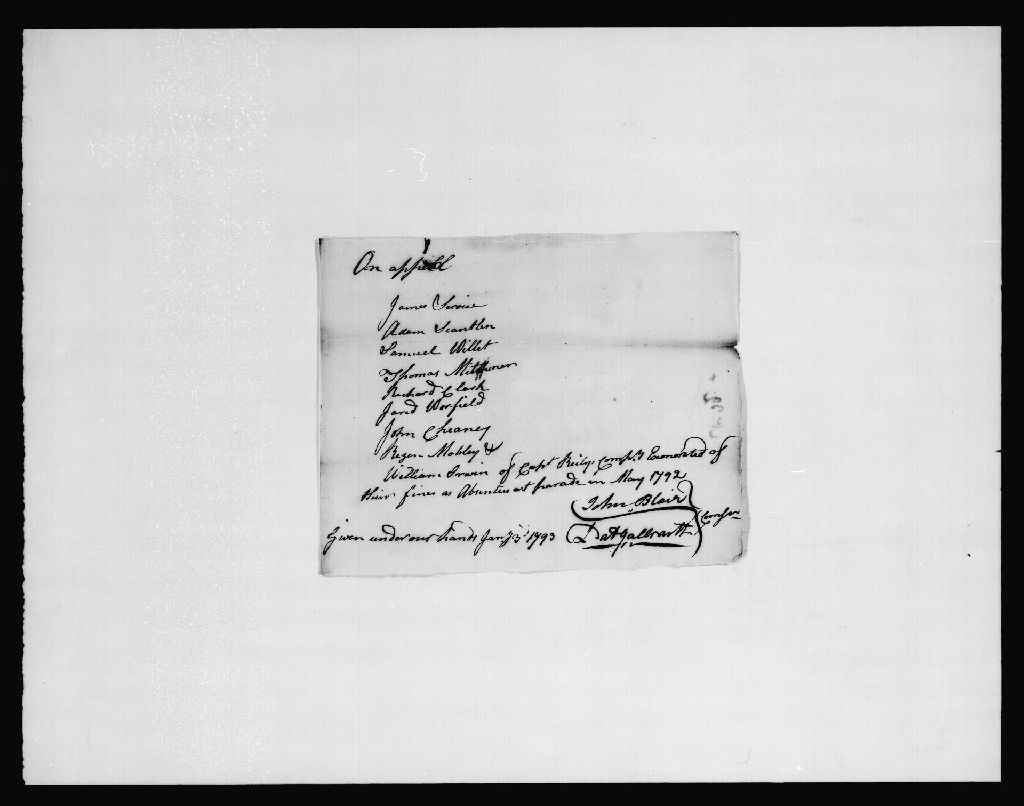 On appeal
James Servise
Adam Scantlen
Samuel Willet
Thomas Mitchner
Richard Clark
Jared Worfield
John Cheaney
Rezen Mobley &
William Irwin of Capt Reily Compy Exonerated of
their fines as Absentees at parade in May 1792
John Blair
Given under our hands Jany 3 1793
Dat Galbraith